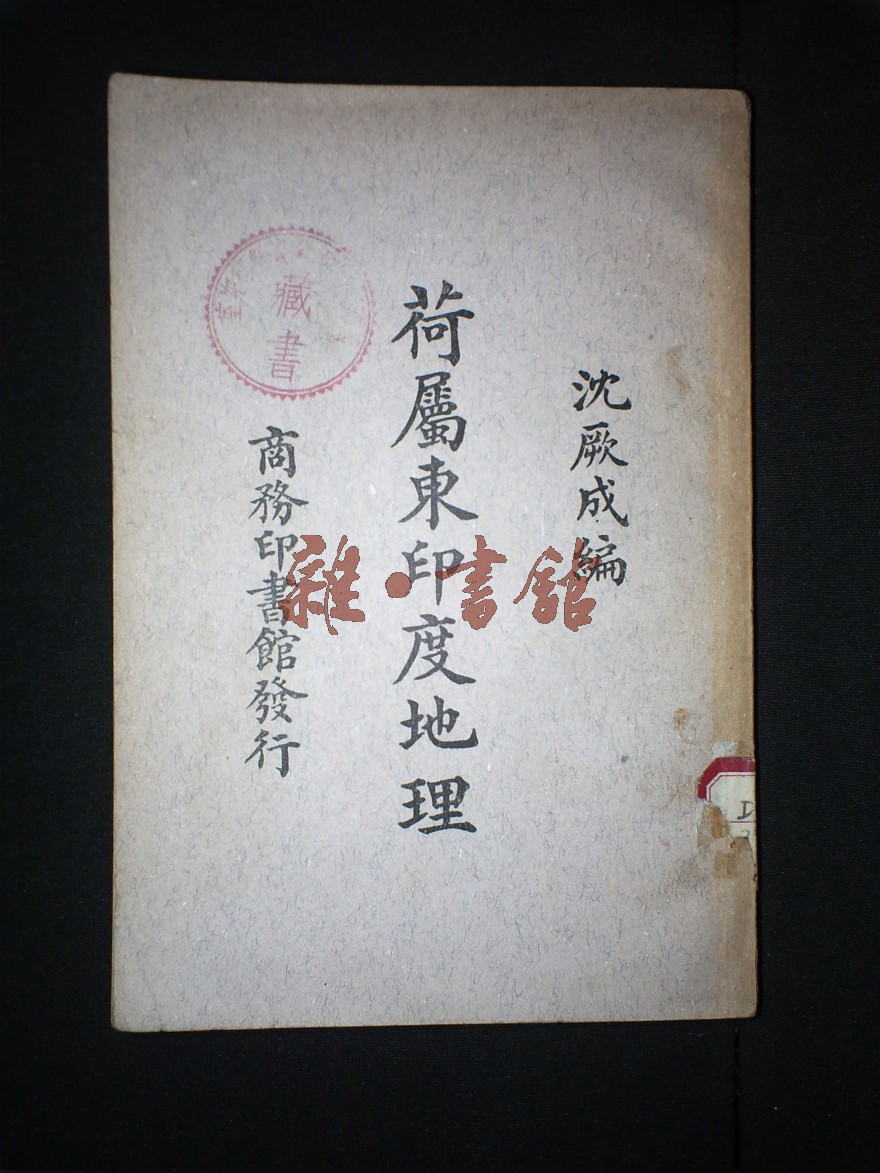 沈厥成編
荷屬東印度地理
商務印書館發行
藏書
雜·書館